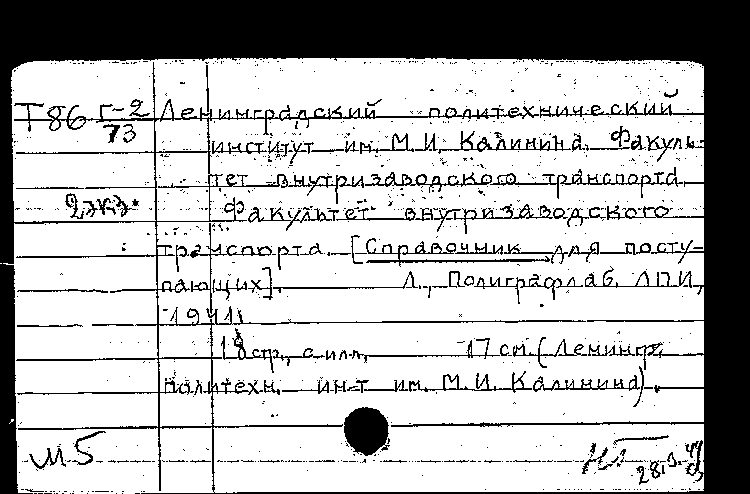 Т86 Г-2 Ленинградский политехнический
73
институт им. М.И. Калинина. Факуль-
тет внутризаводского транспорта.
2 экз. Факультет внутризаводского
транспорта. [Справочник для посту-
пающих]. Л., Полиграфлаб. ЛПИ,
1941.
18 стр., с илл. 17 см. (Ленингр.
политехн. ин-т им. М.И. Калинина).
м5